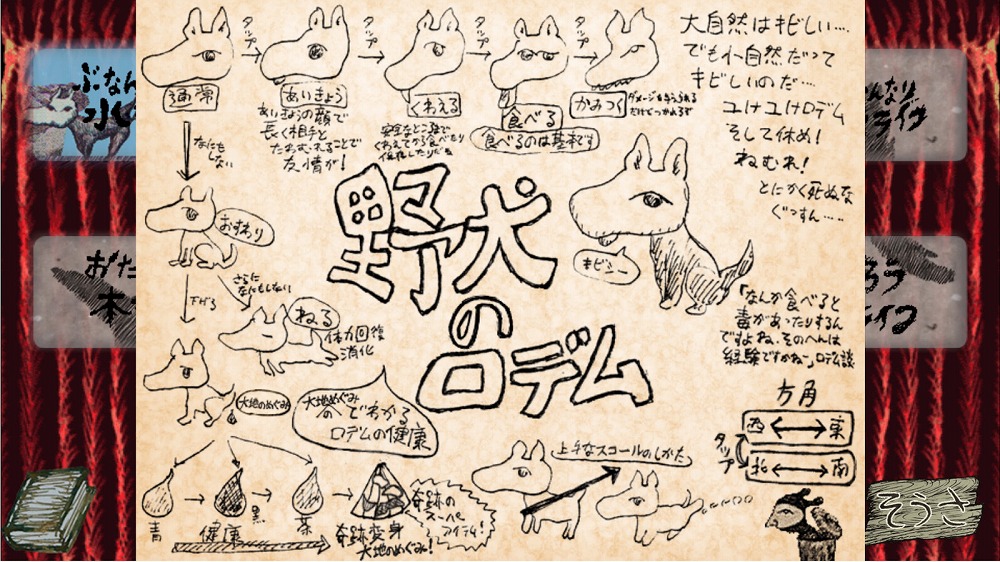 タップ
タップ
タップ
タップ
通常
あいきょう
くわえる
食べる
かみつく
あいきょうの顔で
長く相手と
たわむれることで
友情が!
食べるのは基本です
大自然はキビしい…
でも小自然だって
キビしいのだ…
ユけユけロデム
そして休め!
ねむれ!
とにかく死ぬな
ぐっすん……
なにも
しない
おすわり
さらに
なにもしない
下げる
ねる
体力回復
消化
野犬
の
ロデム
キビシー
「なんか食べると
毒があったりするん
ですよね、そのへんは
経験ですかね」ロデム談
大地のめぐみ
大地のめぐみ
の でわかる
ロデムの健康
方角
西 東
タップ
北 南
上手なスコールのしかた
青
健康
黒
茶
奇跡変身
大地のめぐみ!
奇跡の
スーパー
アイテム!
ぶなん
水
おた
木
そうさ